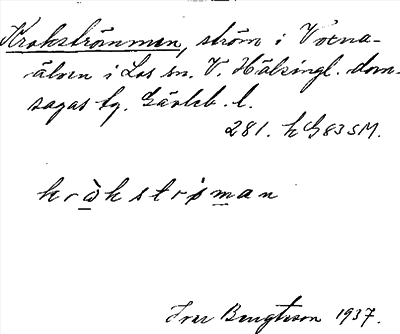 Krokströmmen, ström i Voxna-
älven i Los sn. V. Hälsingl. dom-
sagas tg. Gävleb. l.
281. h G83 SM.
kròkstrøman
Ivar Bengtsson 1937.